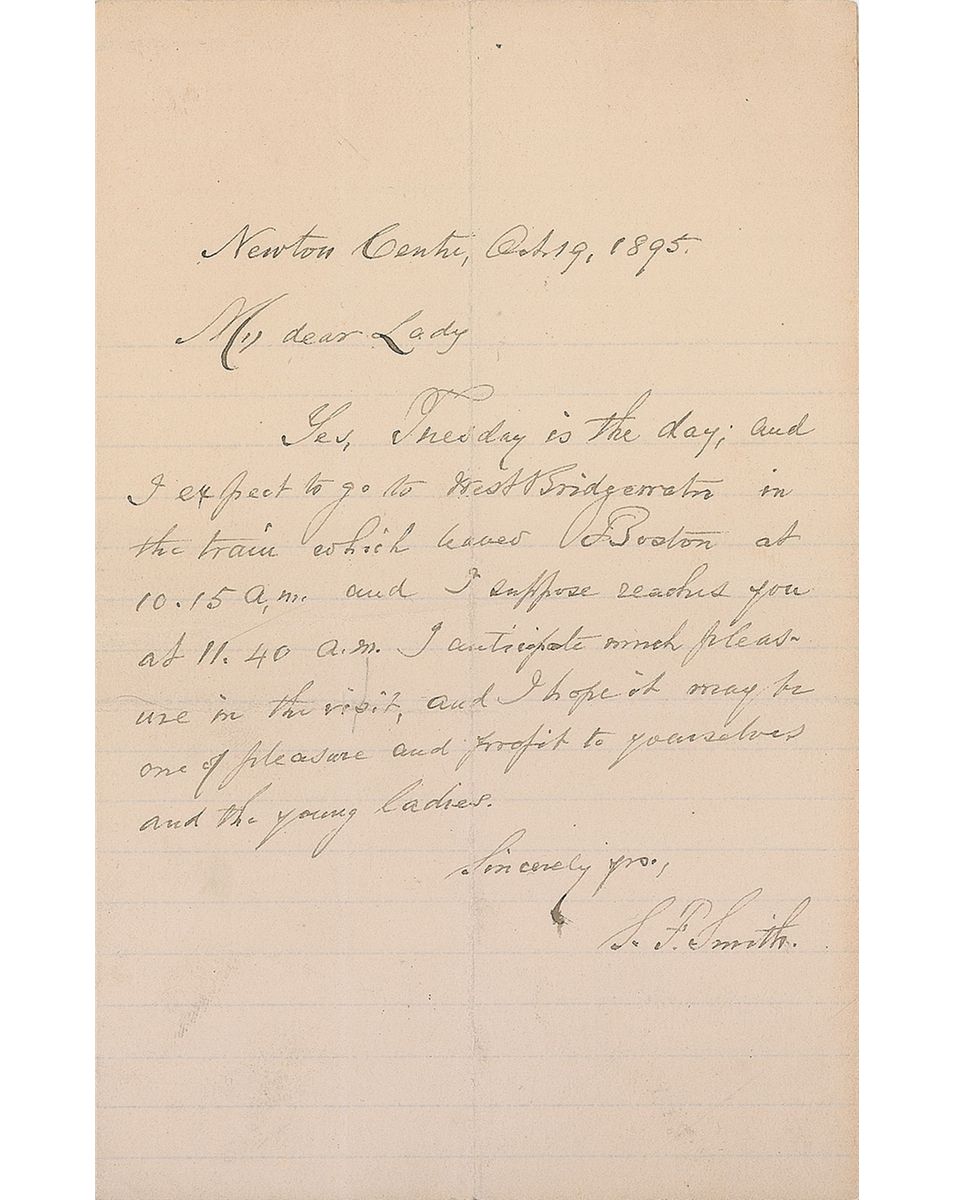 Newton Centre, Oct. 19, 1895.
My dear Lady
Yes, Tuesday is the day; and
I expect to go to West Bridgewater in
the train which leaves Boston at
10.15 a.m. and I suppose reaches you
at 11.40 a.m. I anticipate much pleas-
ure in the visit, and I hope it may be
one of pleasure and profit to yourselves
and the young ladies.
Sincerely yrs.,
S. F. Smith.